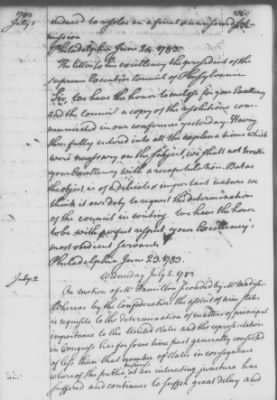 July 1
reduced to a
mission
Philadelphia June 24. 1783.
To his Excellency the president of the
supreme Executive council of Pensylvania
Sir, We have the honor to enclose for your Excellency
and the Council a copy of the resolutions com-
municated in our conference yesterday. Having
then fully entered into all the explanations which
were necessary on the subject, we shall not trouble
your Excellency with a recapitulation. But as
the object is of a delicate & important nature we
think it our duty to request the determination
of the council in writing. We have the honor
to be with perfect respect, your Excellency's
most obedient servants
Philadelphia June 23. 1783.
July 2
Wednesday July 2. 1783
On motion of Mr Hamilton seconded by Mr
Whereas by the Confederation the assent of nine states
is requisite to the determination of matters of principal
importance to the United States and the representation
in Congress has for some time past generally consisted
of less than that number of States in consequence
whereof the public at this interesting juncture has
suffered and continues to suffer great delay and